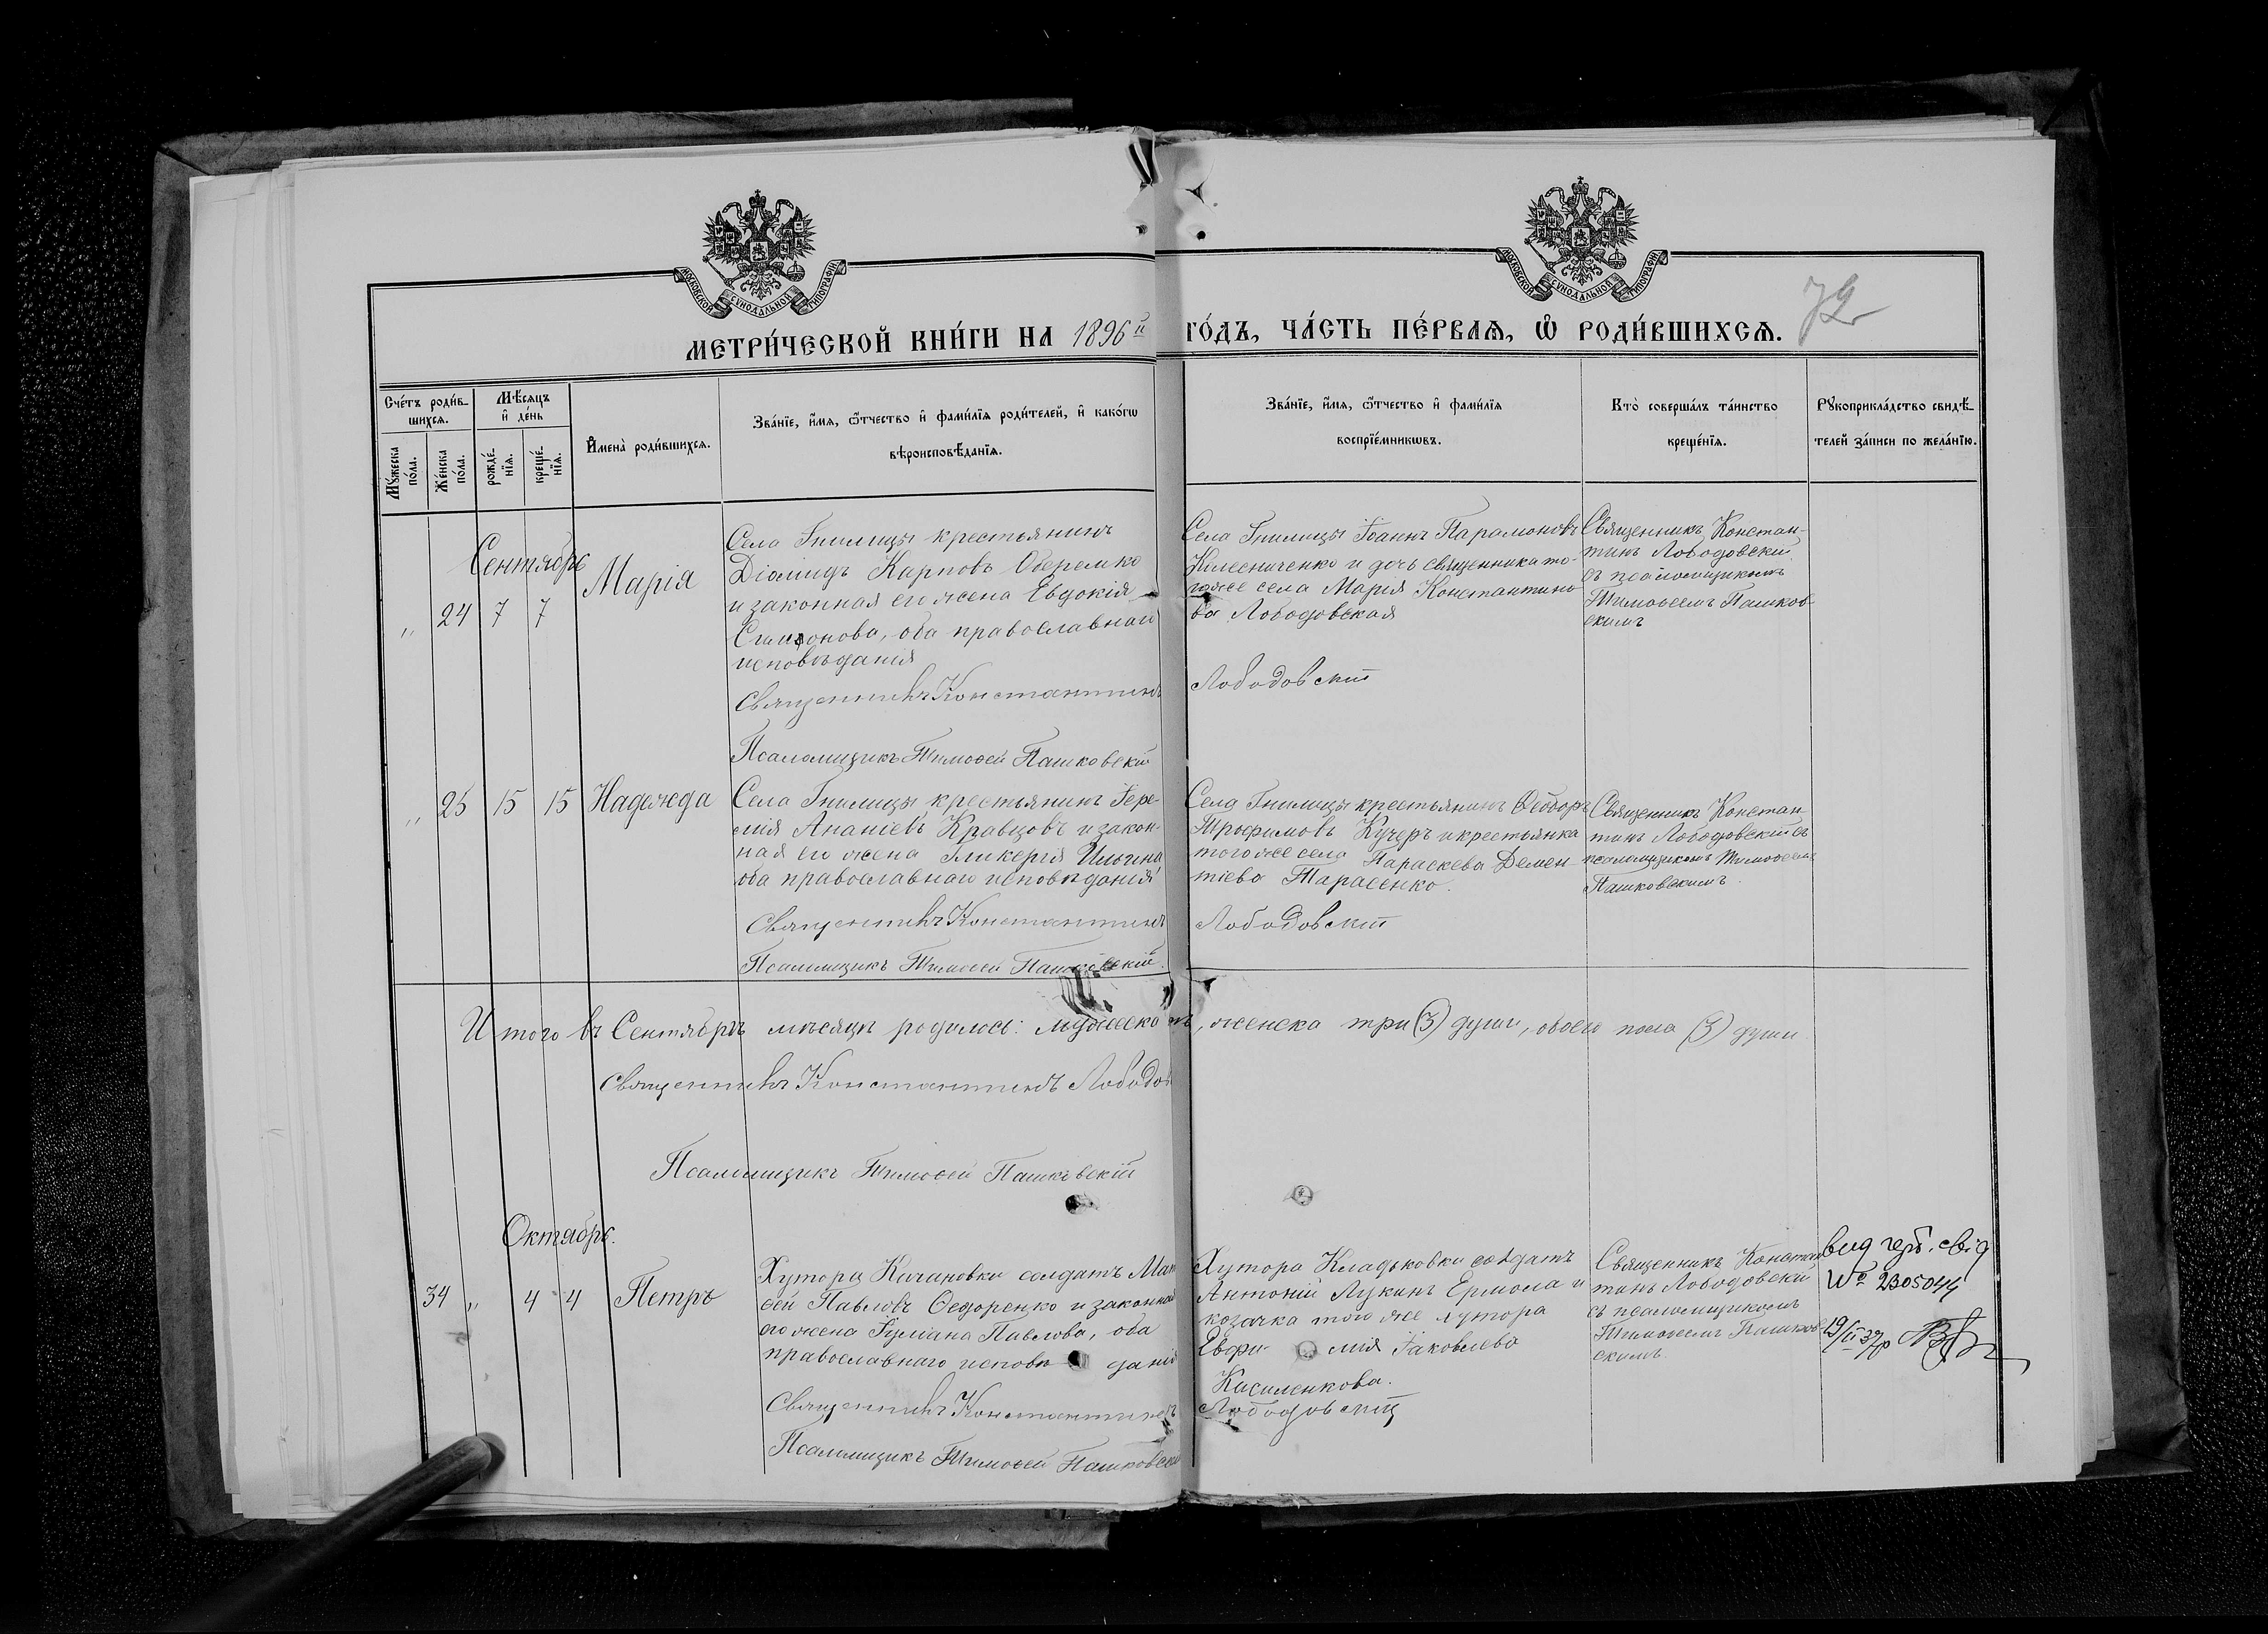 МОСКОВСКОЙ СѴНОДАЛЬНОЙ ТИПОГРАФІИ
МОСКОВСКОЙ СѴНОДАЛЬНОЙ ТИПОГРАФІИ
72
МЕТРИ́ЧЕСКОЙ КНИ́ГИ НА 1896й ГО́ДЪ, ЧА́СТЬ ПЕ́РВАѦ, Ѽ РОДИ́ВШИХСѦ.
Сче́тъ роди́в-
шихсѧ.
Мꙋ́жеска
по́ла.
Же́нска
по́ла.
Мѣ́сѧцъ
и҆ де́нь
рожде́-
нїѧ.
креще́-
нїѧ.
И҆мена̀ роди́вшихсѧ.
Зва́нїе, и҆́мѧ, ѻ҆́тчество и҆ фами́лїѧ роди́телей, и҆ како́гѡ
вѣроисповѣ́данїѧ.
Зва́нїе, и҆́мѧ, ѻ҆́тчество и҆ фами́лїѧ
воспрїе́мникѡвъ.
Кто̀ соверша́лъ та́инство
креще́нїѧ.
Рꙋкоприкла́дство свидѣ́-
телей за́писи по жела́нїю.
Сентябрь
„ 24 7 7
Марія
Села Гнилицы крестьянинъ
Діомидъ Карповъ Оберемко
и законная его жена Евдокія
Симеонова, оба православнаго
исповѣданія
Священникъ Константинъ Лободовскій
Псаломщикъ Тимоѳей Пашковскій
Села Гнилицы Іоаннъ Парамоновъ
Колесниченко и дочь священника то-
гоже села Марія Константино-
ва Лободовская
Священникъ Констан-
тинъ Лободовскій
съ псаломщикомъ
Тимоѳеемъ Пашков-
скимъ
„ 25 15 15 Надежда
Села Гнилицы крестьянинъ Іере-
мія Ананіевъ Кравцовъ и закон-
ная его жена Гликерія Ильина
оба православнаго исповѣданія
Священникъ Константинъ Лободовскій
Псаломщикъ Тимоѳей Пашковскій.
Села Гнилицы крестьянинъ Ѳеодоръ
Трофимовъ Кучеръ и крестьянка
того же села Параскева Демен-
тіева Тарасенко.
Священникъ Констан-
тинъ Лободовскій съ
псаломщикомъ Тимоѳеемъ
Пашковскимъ.
Итого въ Сентябрѣ мѣсяцѣ родилось: мужеска нѣтъ, женска три (3) души, обоего пола (3) души.
Священникъ Константинъ Лободов
Псаломщикъ Тимоѳей Пашковскій
Октябрь.
34 „ 4 4 Петръ
Хутора Кочановки солдатъ
сей Павловъ Ѳедоренко и законная
его жена Іуліана Павлова, оба
православнаго исповѣ данія
Священникъ Константинъ Лободовскій
Псаломщикъ Тимоѳей Пашковскій
Хутора Кладьковки солдатъ
Антоній Лукинъ Ермола и
козачка того же хутора
Евфи- мія Іаковлева
Касиленкова.
Священникъ Констан
тинъ Лободовскій
съ псаломщикомъ
Тимоѳеемъ Пашков
скимъ.
вид герб. свід
№ 2305044
19/II 37р